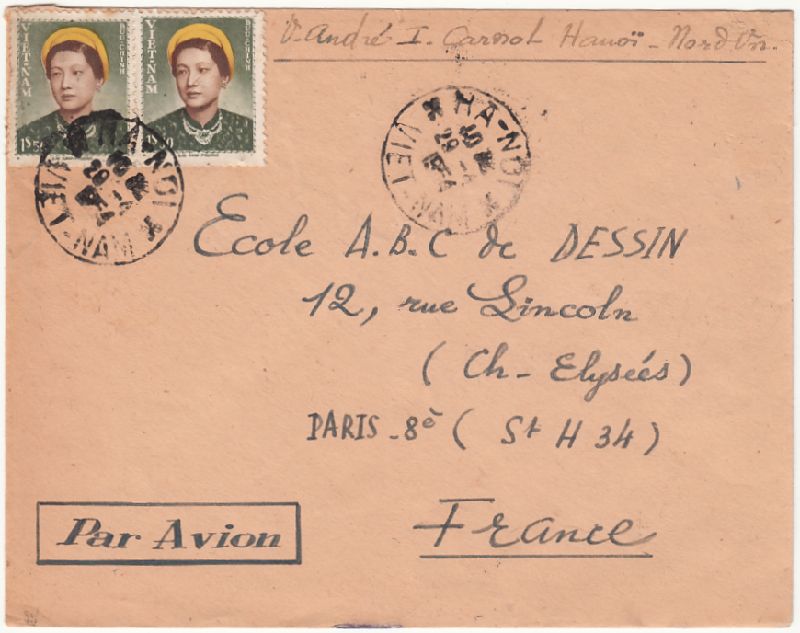 V. André I. Carnot Hanoï - Nord Vn.
VIET-NAM BUU-CHINH
VIET-NAM BUU-CHINH
1$50
HA-NOI
VIET-NAM
HA-NOI
VIET-NAM
Ecole A.B.C de DESSIN
12, rue Lincoln
( Ch - Elyséés )
PARIS - 8è ( St H 34 )
France
Par Avion